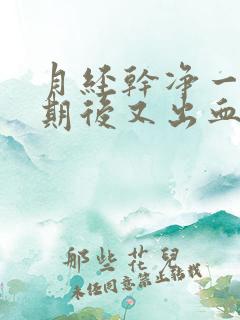 月経幹净一
期後又出血
那些花兒
未经同意禁止转载